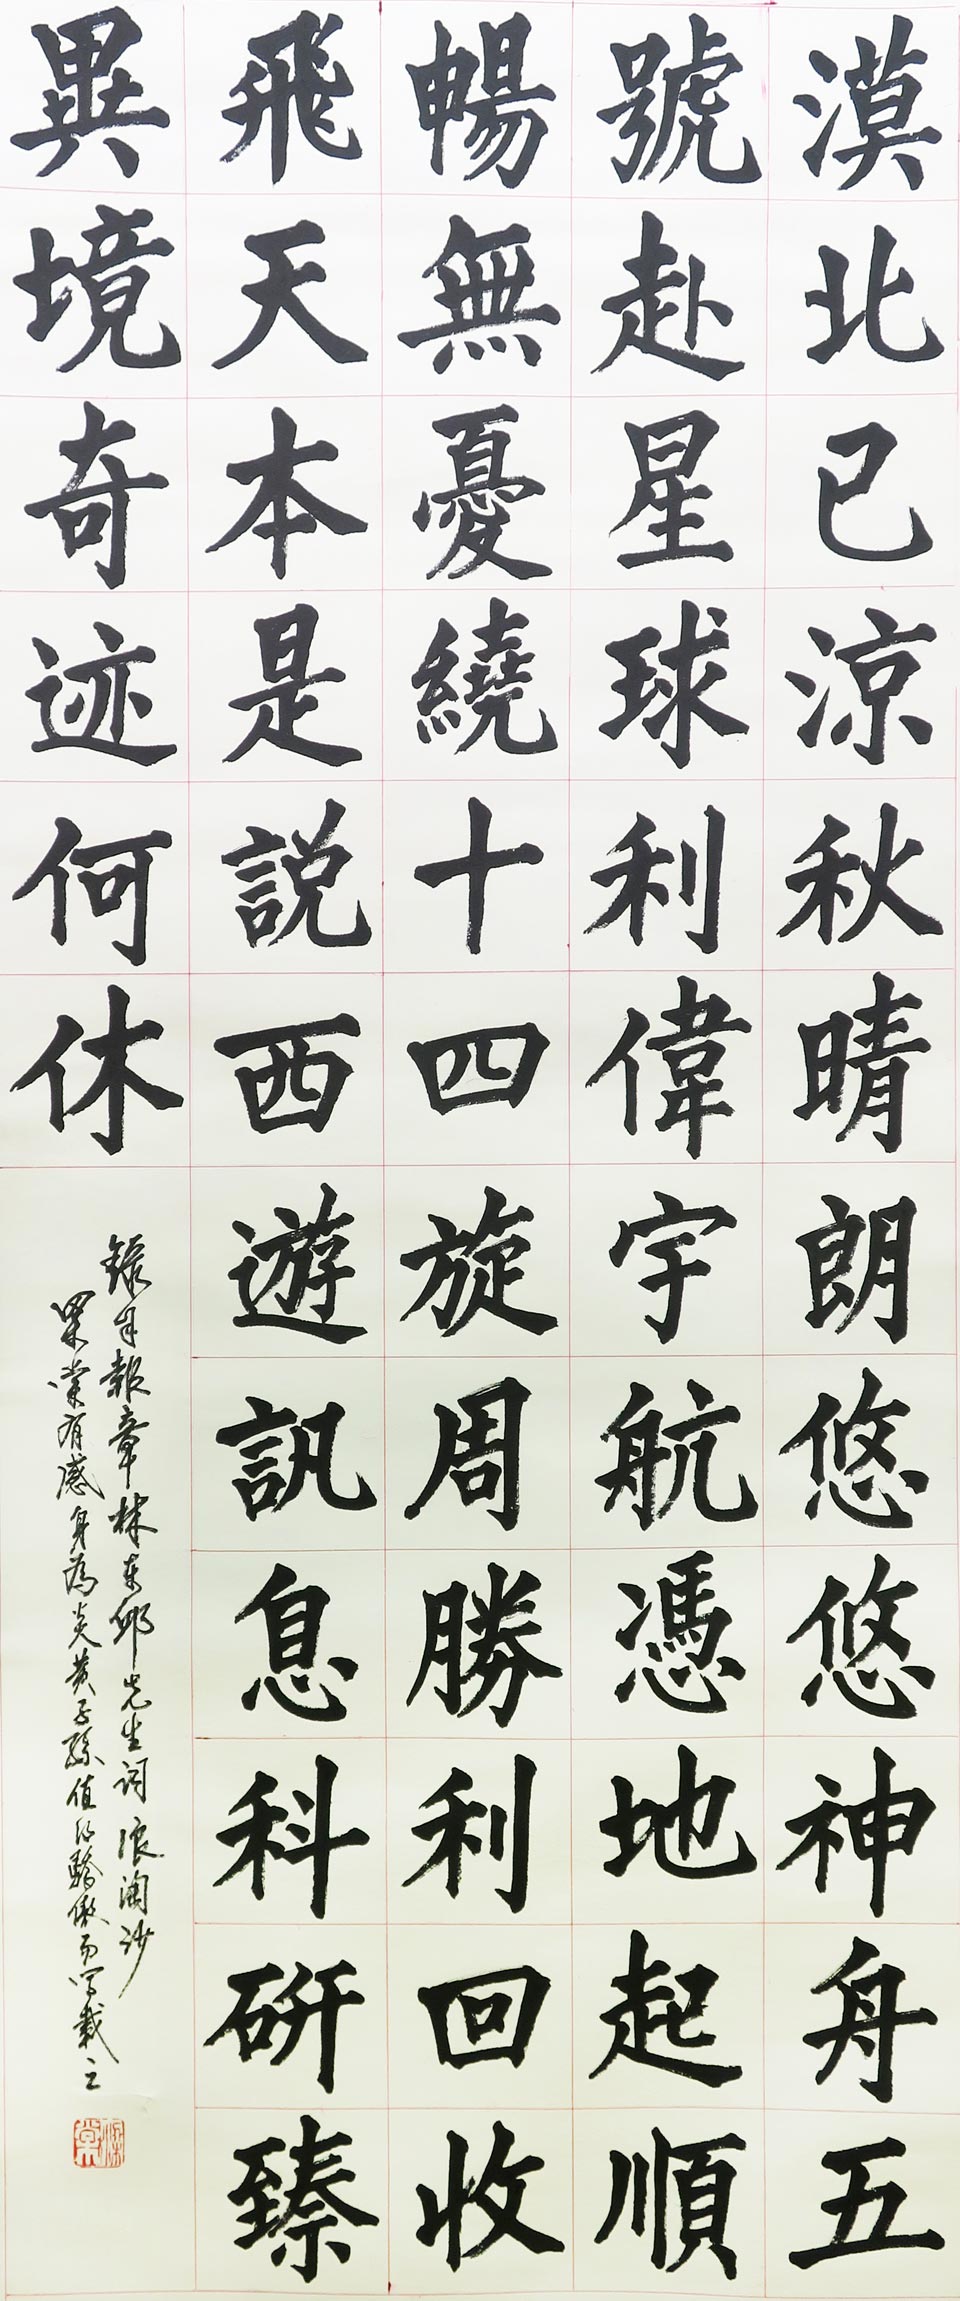 漠北已涼秋晴朗悠悠神舟五
號赴星球利偉宇航憑地起順
暢無憂繞十四旋周勝利回收
飛天本是説西遊訊息科研臻
異境奇迹何休
錄自報章林東邜先生詞浪淘沙
梁棠有感身為炎黃子孫值得驕傲而寫載之
梁棠